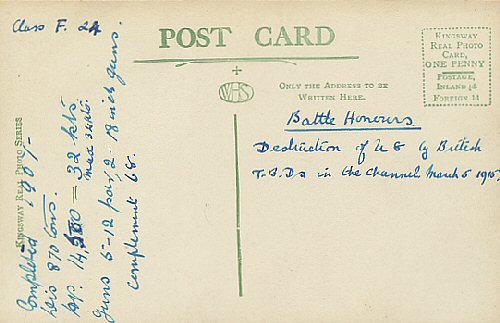 Class F. 24
POST CARD
KINGSWAY
REAL PHOTO
CARD,
ONE PENNY
POSTAGE,
INLAND ½d
FOREIGN 1d
WHS
ONLY THE ADDRESS TO BE
WRITTEN HERE.
Battle Honours
Destruction of U 8 by British
T.B.Ds in the Channel, March 5 1915.
KINGSWAY REAL PHOTO SERIES
Completed 1907/-
Dis 870 tons.
HP. 14,500 = 32 kts
Guns 5-12 pdr, 2-18 inch guns.
Complement 68.